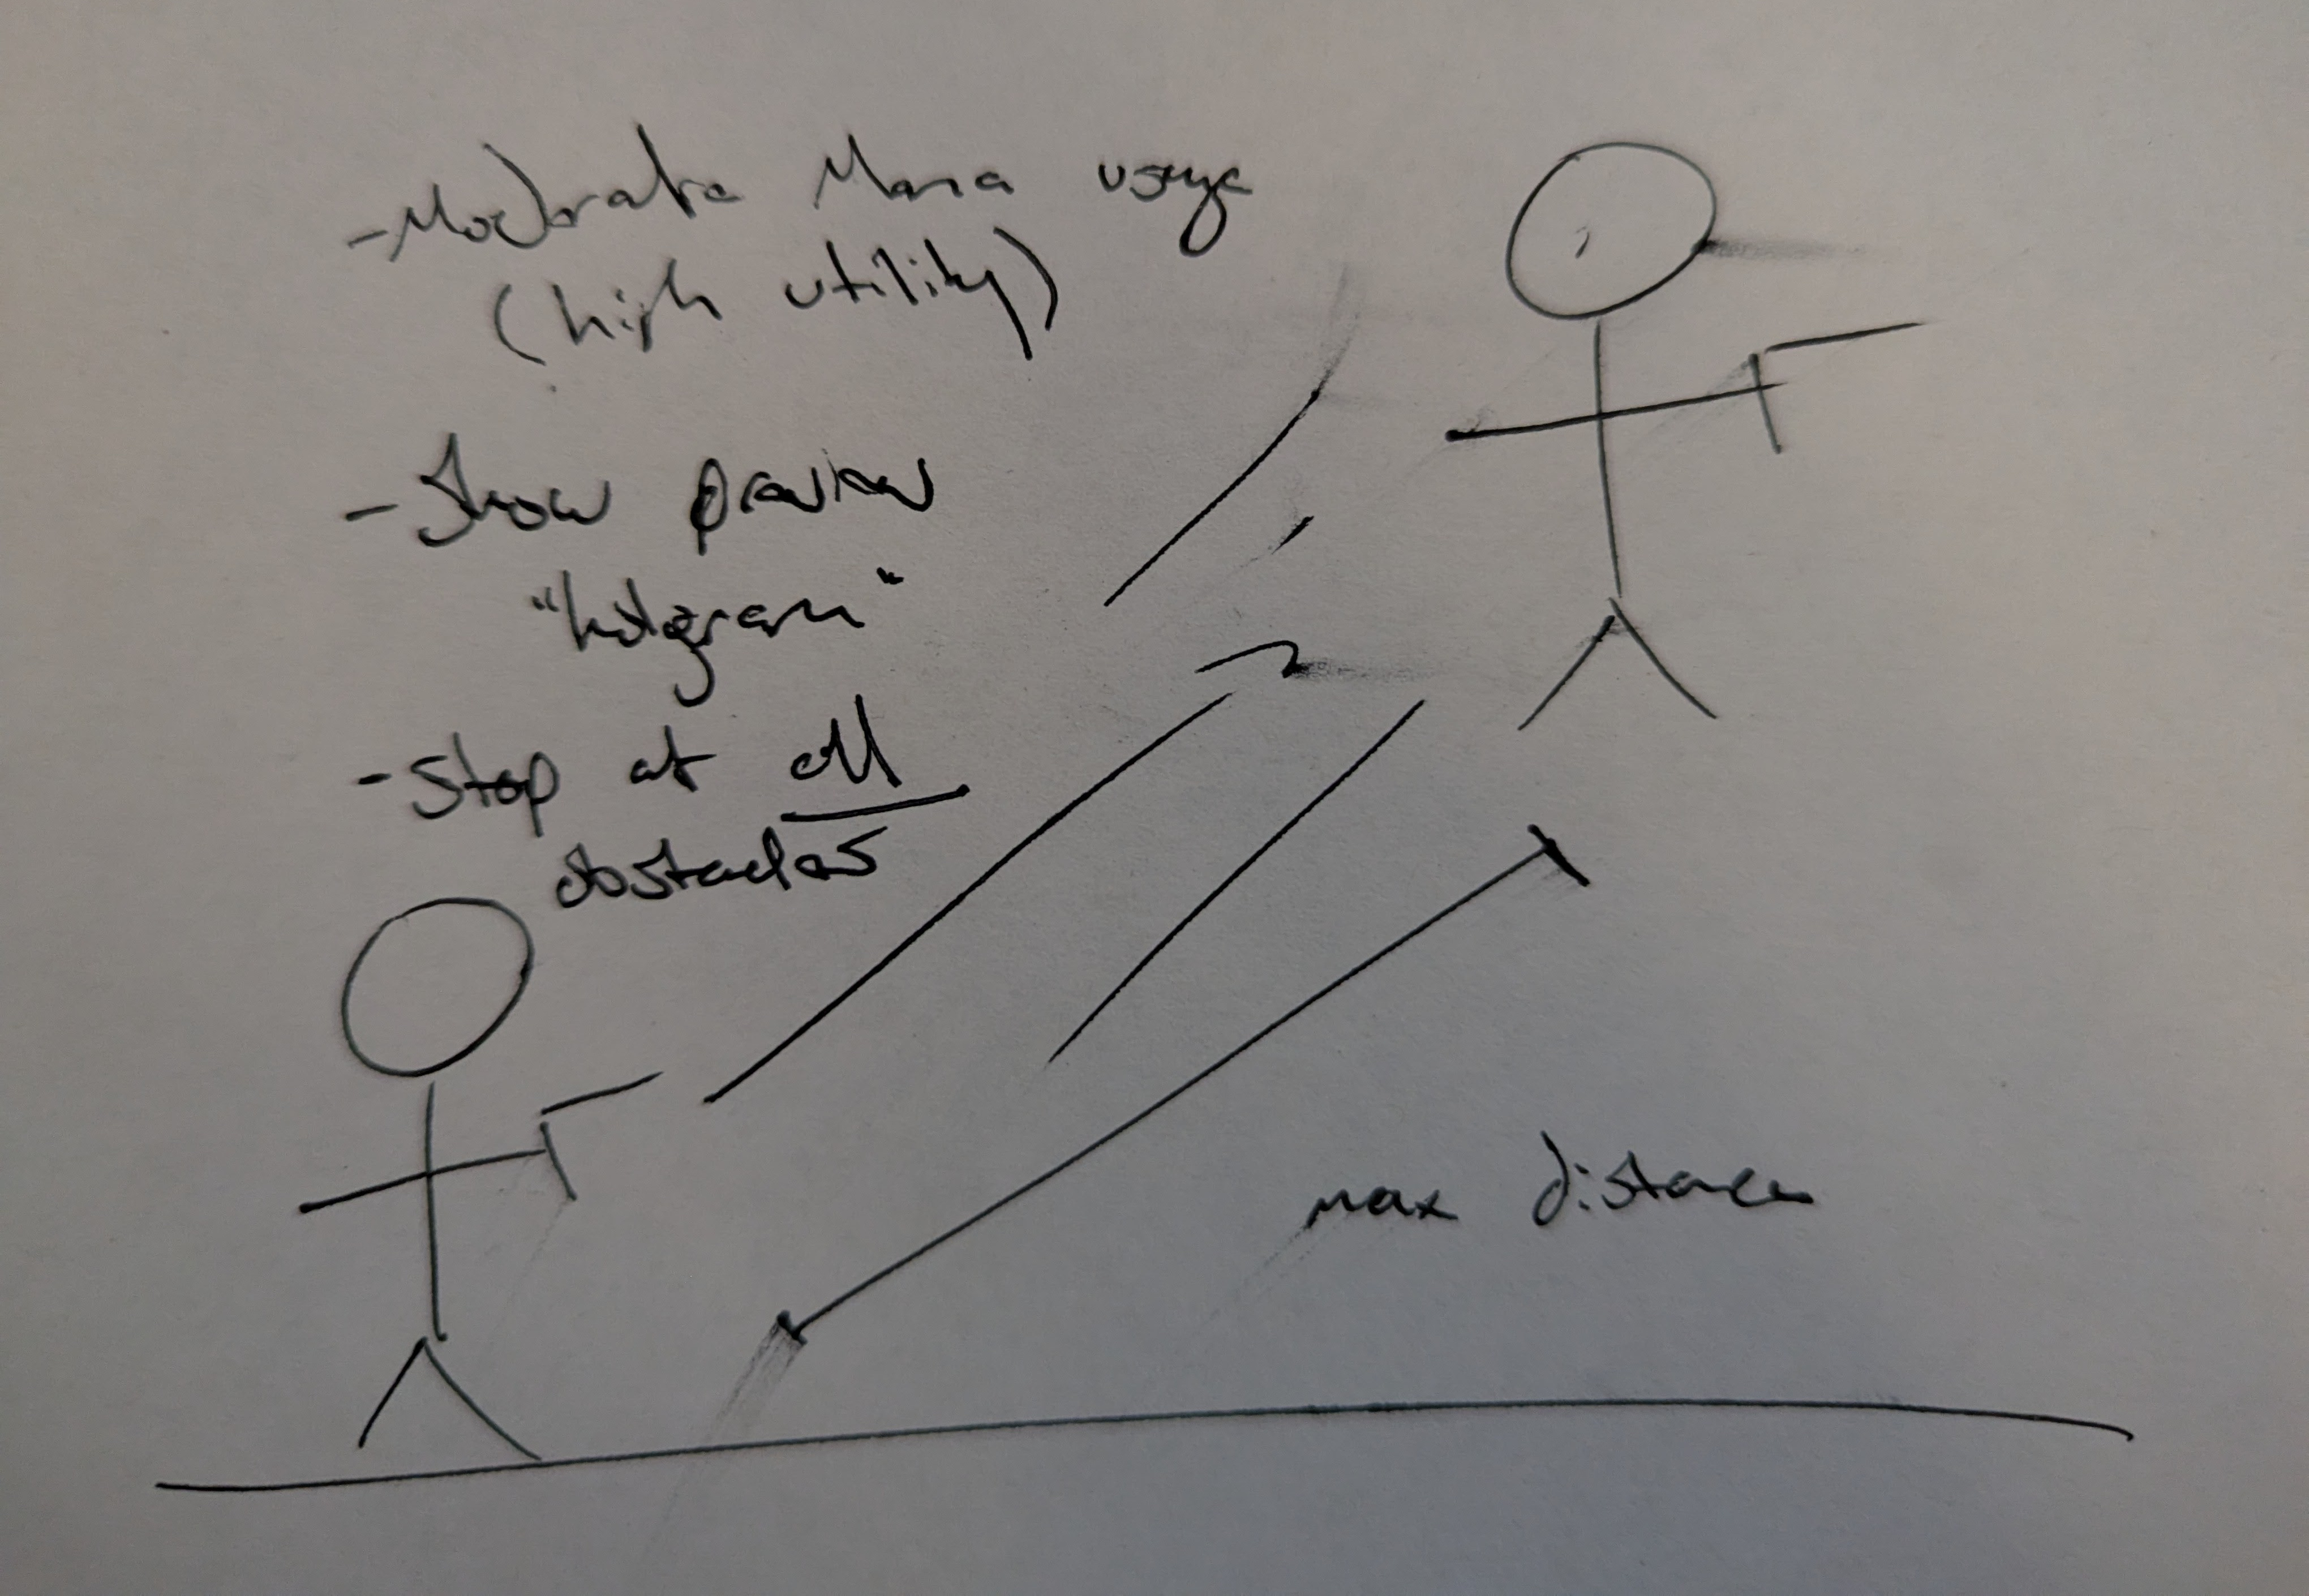 - Moderate Mana usage
(high utility)
- Show preview
"hologram"
- Stop at all
obstacles
max distance